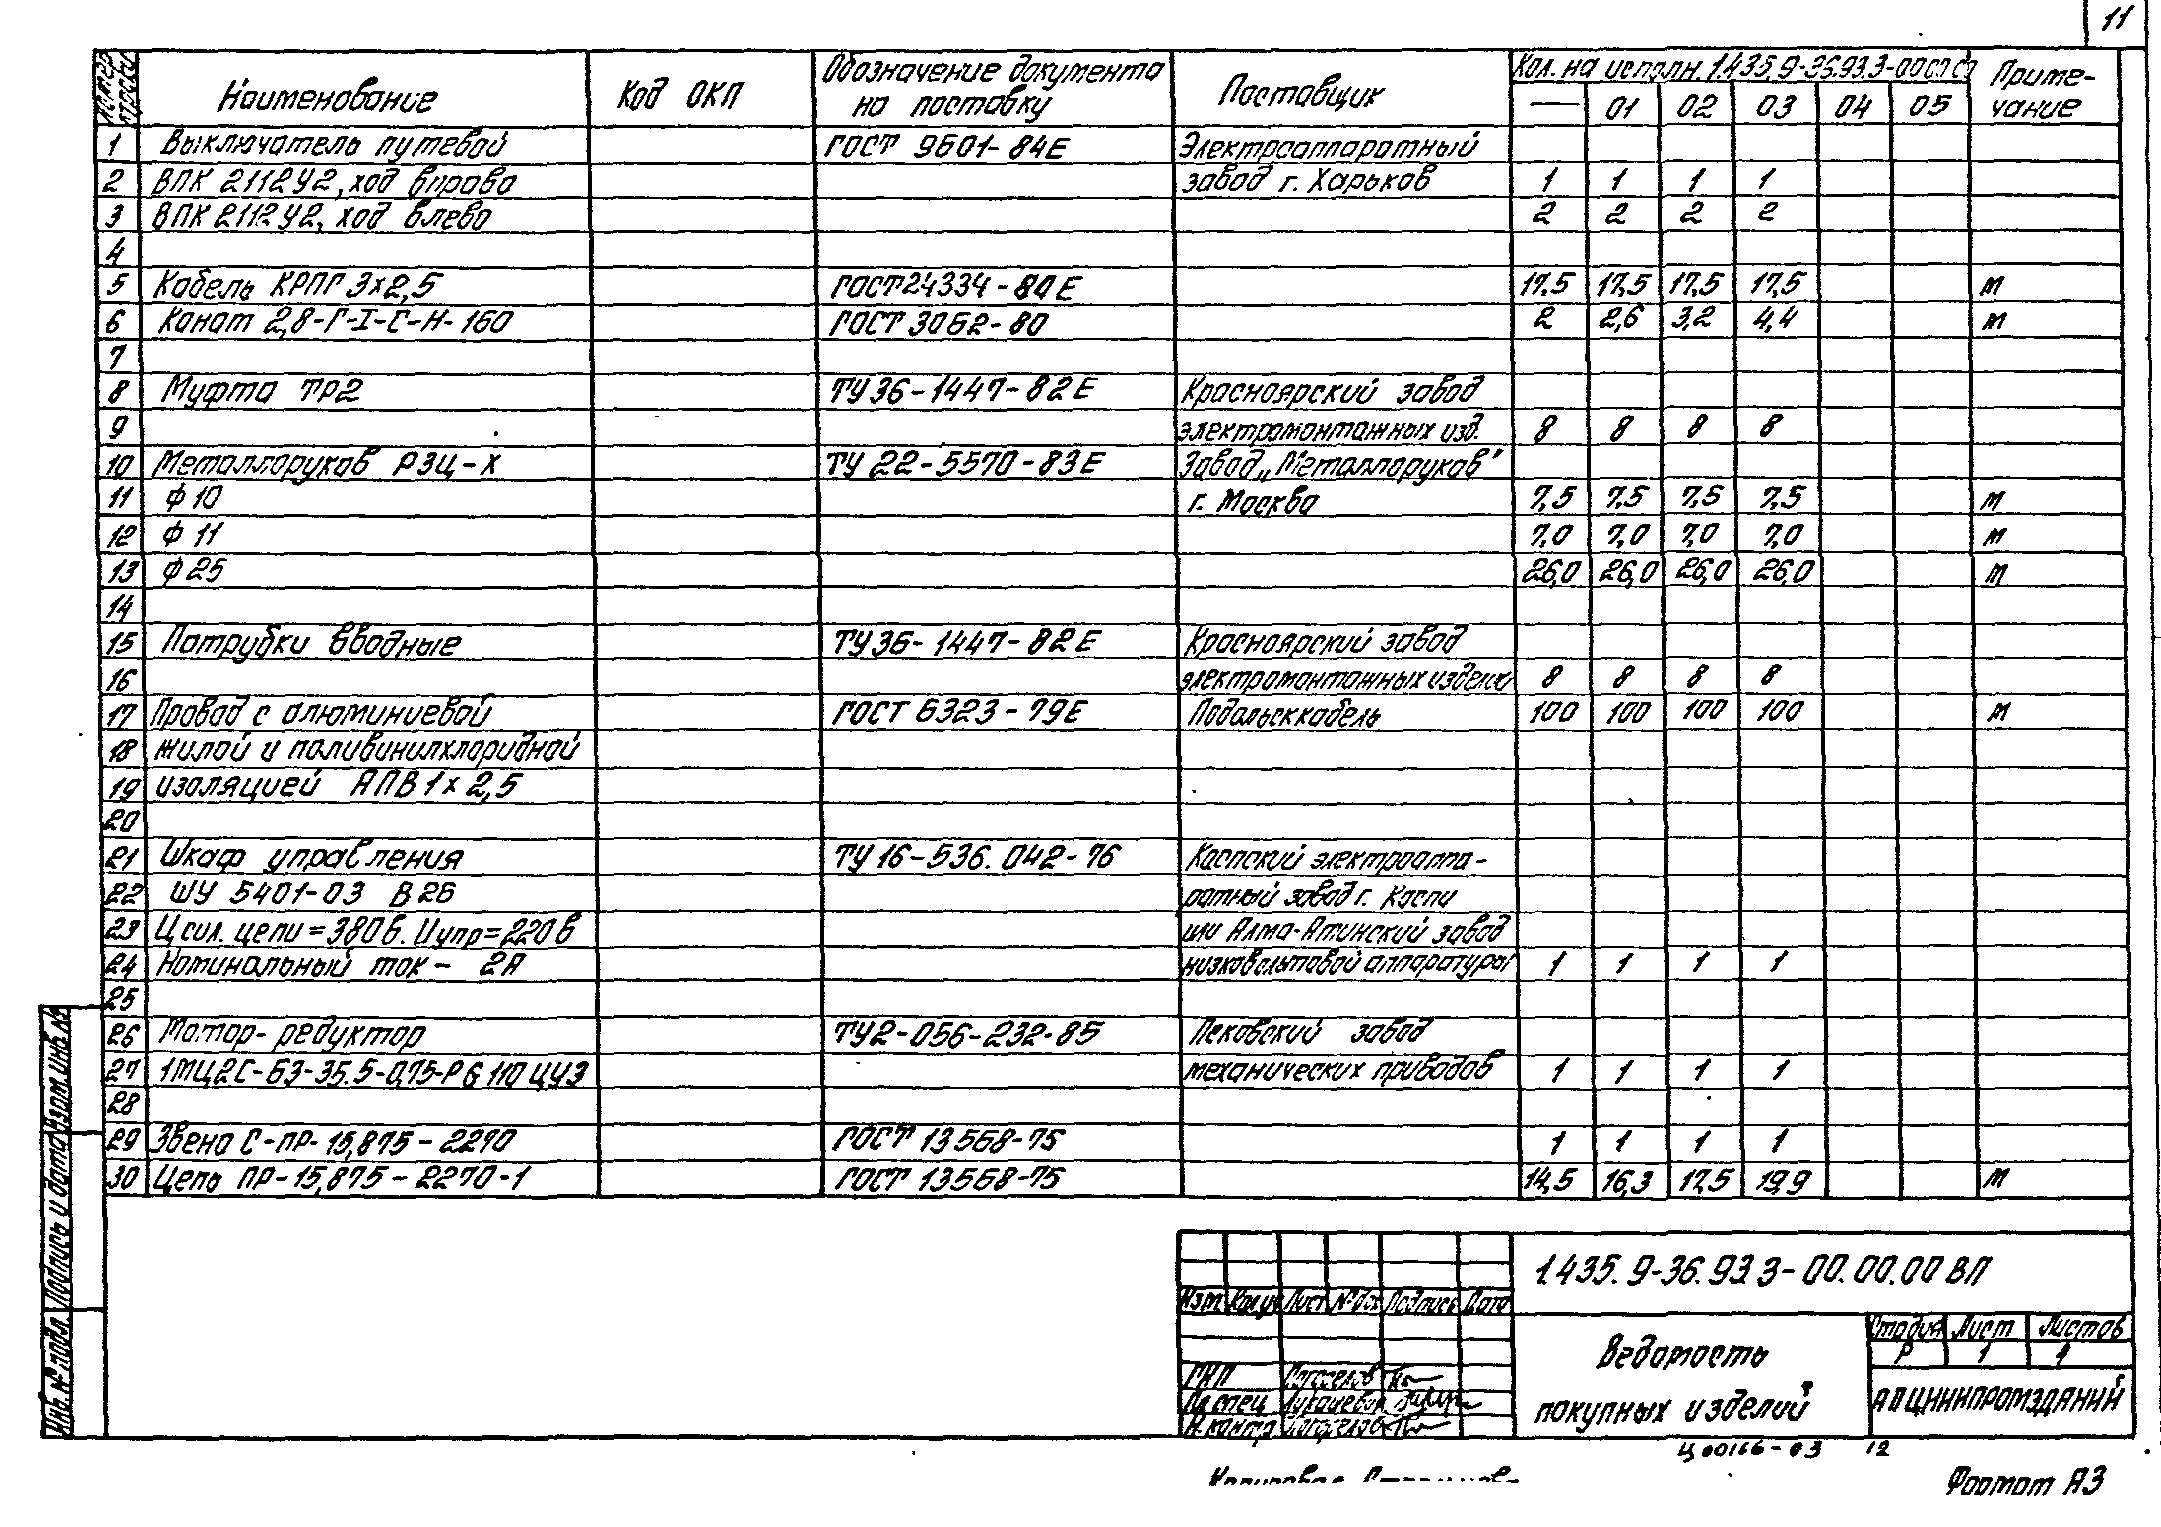 11
Номер строки | Наименование | Код ОКП | Обозначение документа на поставку | Поставщик | Кол. на исполн. 1.435.9-36.93.3-00СПСП | Приме-чание
— | 01 | 02 | 03 | 04 | 05
1 Выключатель путевой | ГОСТ 9601-84Е | Электроаппаратный
2 ВПК 2112У2, ход вправо | завод г. Харьков | 1 | 1 | 1 | 1
3 ВПК 2112У2, ход влево | 2 | 2 | 2 | 2
4
5 Кабель КРПГ 3х2,5 | ГОСТ 24334-80Е | 17,5 | 17,5 | 17,5 | 17,5 | м
6 Канат 2,8-Г-I-С-Н-160 | ГОСТ 3062-80 | 2 | 2,6 | 3,2 | 4,4 | м
7
8 Муфта ТР2 | ТУ36-1447-82Е | Красноярский завод
9 | электромонтажных изд. | 8 | 8 | 8 | 8
10 Металлорукав РЗЦ-Х | ТУ 22-5570-83Е | Завод „Металлорукав"
11 Ф10 | г. Москва | 7,5 | 7,5 | 7,5 | 7,5 | м
12 Ф 11 | 7,0 | 7,0 | 7,0 | 7,0 | м
13 Ф25 | 26,0 | 26,0 | 26,0 | 26,0 | м
14
15 Патрубки вводные | ТУ36-1447-82Е | Красноярский завод
16 | электромонтажных изделий | 8 | 8 | 8 | 8
17 Провод с алюминиевой | ГОСТ 6323-79Е | Подольсккабель | 100 | 100 | 100 | 100 | м
18 жилой и поливинилхлоридной
19 изоляцией АПВ 1х2,5
20
21 Шкаф управления | ТУ16-536.042-76 | Каспский электроаппа-
22 ШУ 5401-03 В2Б | ратный завод г. Каспи
23 Uсил. цепи=380в. Uупр=220в | или Алма-Атинский завод
24 Номинальный ток- 2А | низковольтовой аппаратуры | 1 | 1 | 1 | 1
25
26 Мотор-редуктор | ТУ2-056-232-85 | Псковский завод
27 1МЦ2С-63-35.5-0,75-Р G 110 ЦУ3 | механических приводов | 1 | 1 | 1 | 1
28
29 Звено С-ПР-15,875-2270 | ГОСТ 13568-75 | 1 | 1 | 1 | 1
30 Цепь ПР-15,875-2270-1 | ГОСТ 13568-75 | 14,5 | 16,3 | 17,5 | 19,9 | м
Взам. инв. №
Подпись и дата
Инв. № подл.
1.435.9-36.93.3-00.00.00 ВП
Изм Кол.уч Лист № док Подпись Дата
Ведомость
покупных изделий
Стадия Лист Листов
Р 1 1
АО ЦНИИПРОМЗДАНИЙ
ГИП
Гл. спец
Н. контр
Ц00166-03 12
Формат А3